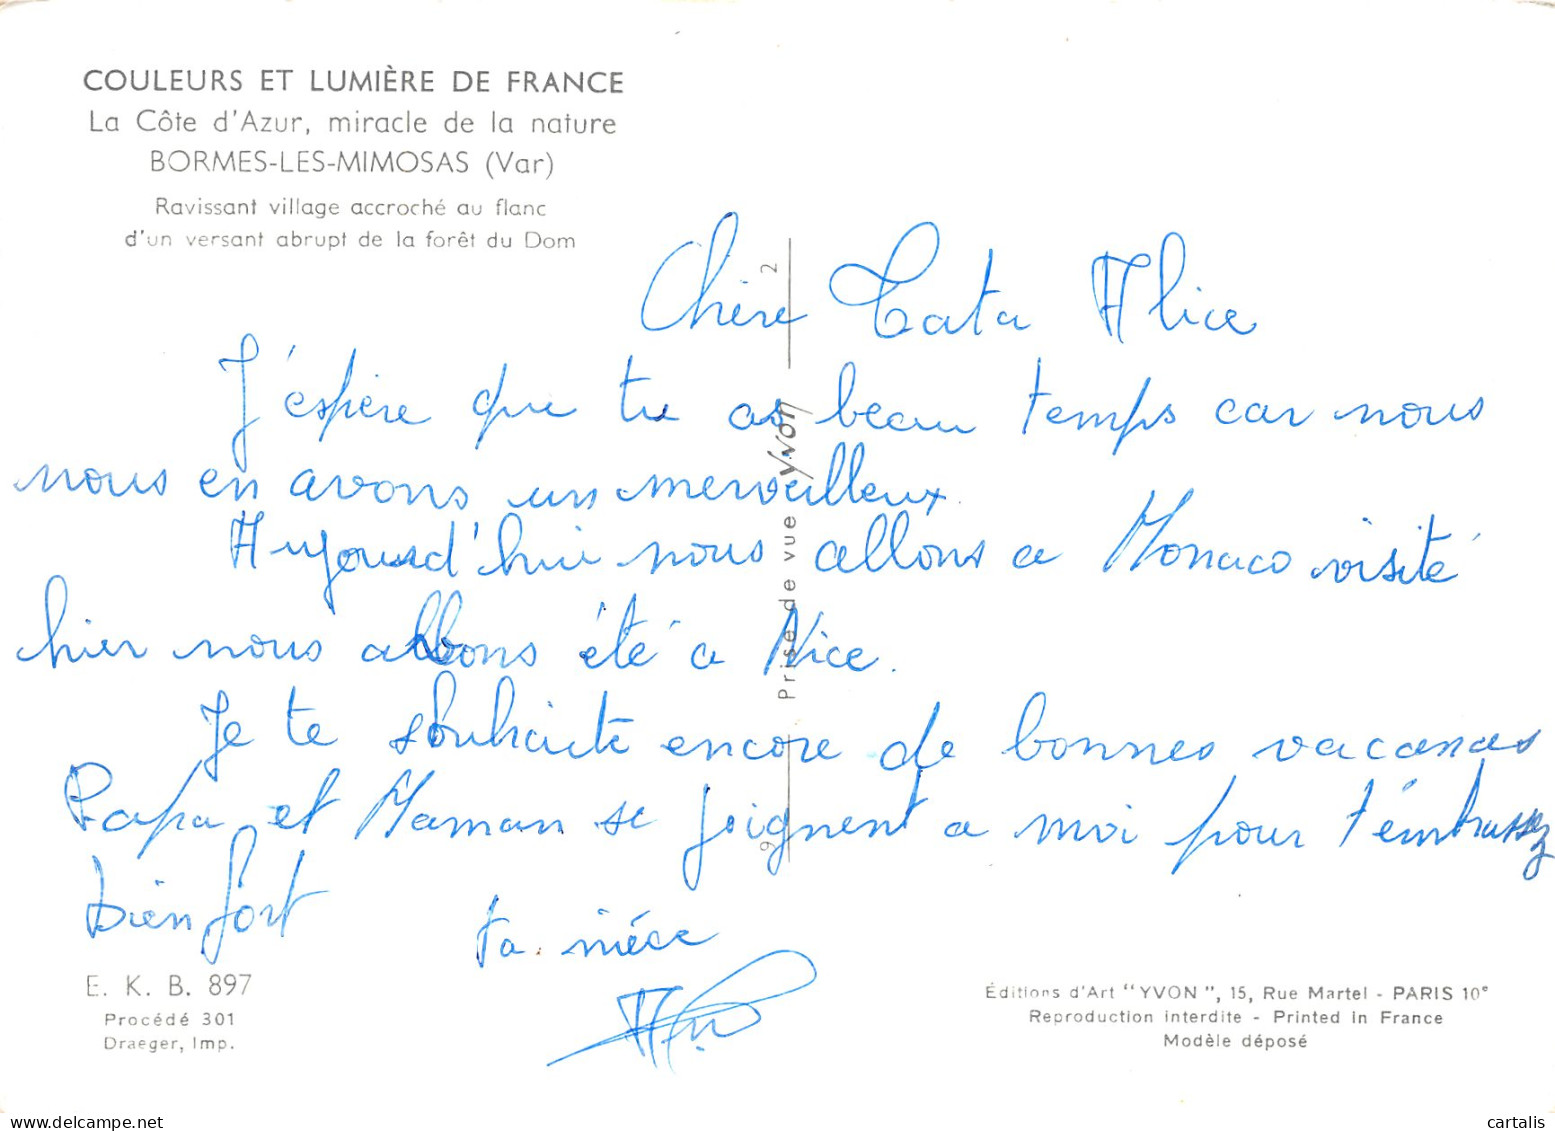 COULEURS ET LUMIÈRE DE FRANCE
La Côte d'Azur, miracle de la nature
BORMES-LES-MIMOSAS (Var)
Ravissant village accroché au flanc
d'un versant abrupt de la forêt du Dom
Chère Tata Alice
J'éspère que tu as beau temps car nous
nous en avons un merveilleux.
Aujourd'hui nous allons a Monaco visité
hier nous allons été a Nice.
Je te souhaite encore de bonnes vacances
Papa et Maman se joignent a moi pour t'émbrassez
bien fort
ta nièce
2
Yvon
Prise de vue
9
E. K. B. 897
Procédé 301
Draeger, Imp.
Éditions d'Art "YVON", 15, Rue Martel - PARIS 10e
Reproduction interdite - Printed in France
Modèle déposé
www.delcampe.net
cartalis